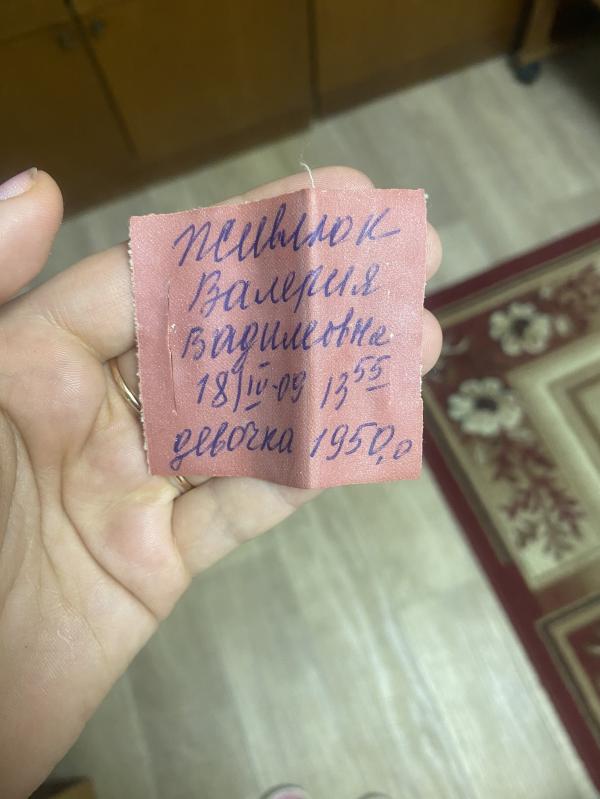 Живлюк
Валерия
Вадимовна
18/IV-09 13 55
девочка 1950,0